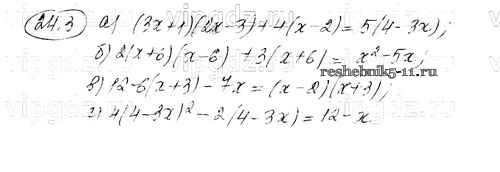 24.3 а) (3x+1)(2x-3)+4(x-2)=5(4-3x);
б) 2(x+6)(x-6)+3(x+6)=x²-5x;
в) 12-6(x+3)-7x=(x-2)(x+3);
reshebnik5-11.ru
г) 4(4-3x)²-2(4-3x)=12-x